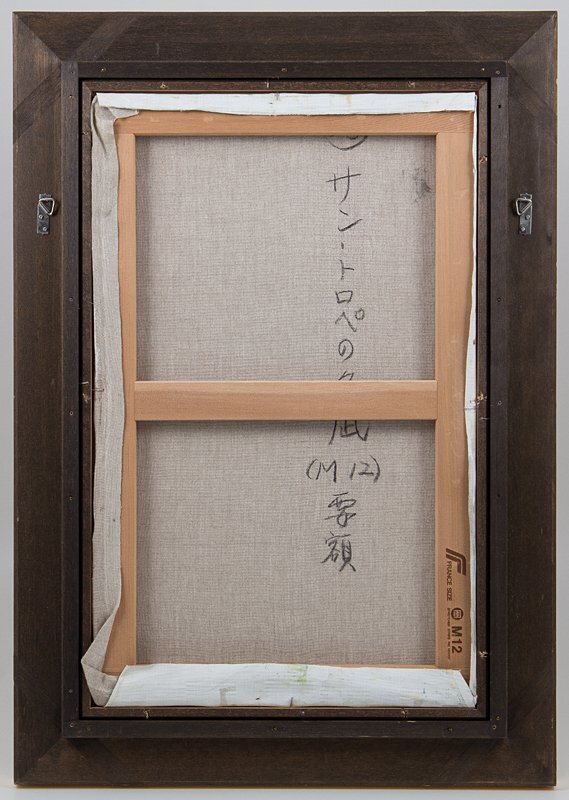 サン・トロペの夕凪
(M12)
要額
FRANCE SIZE
M12